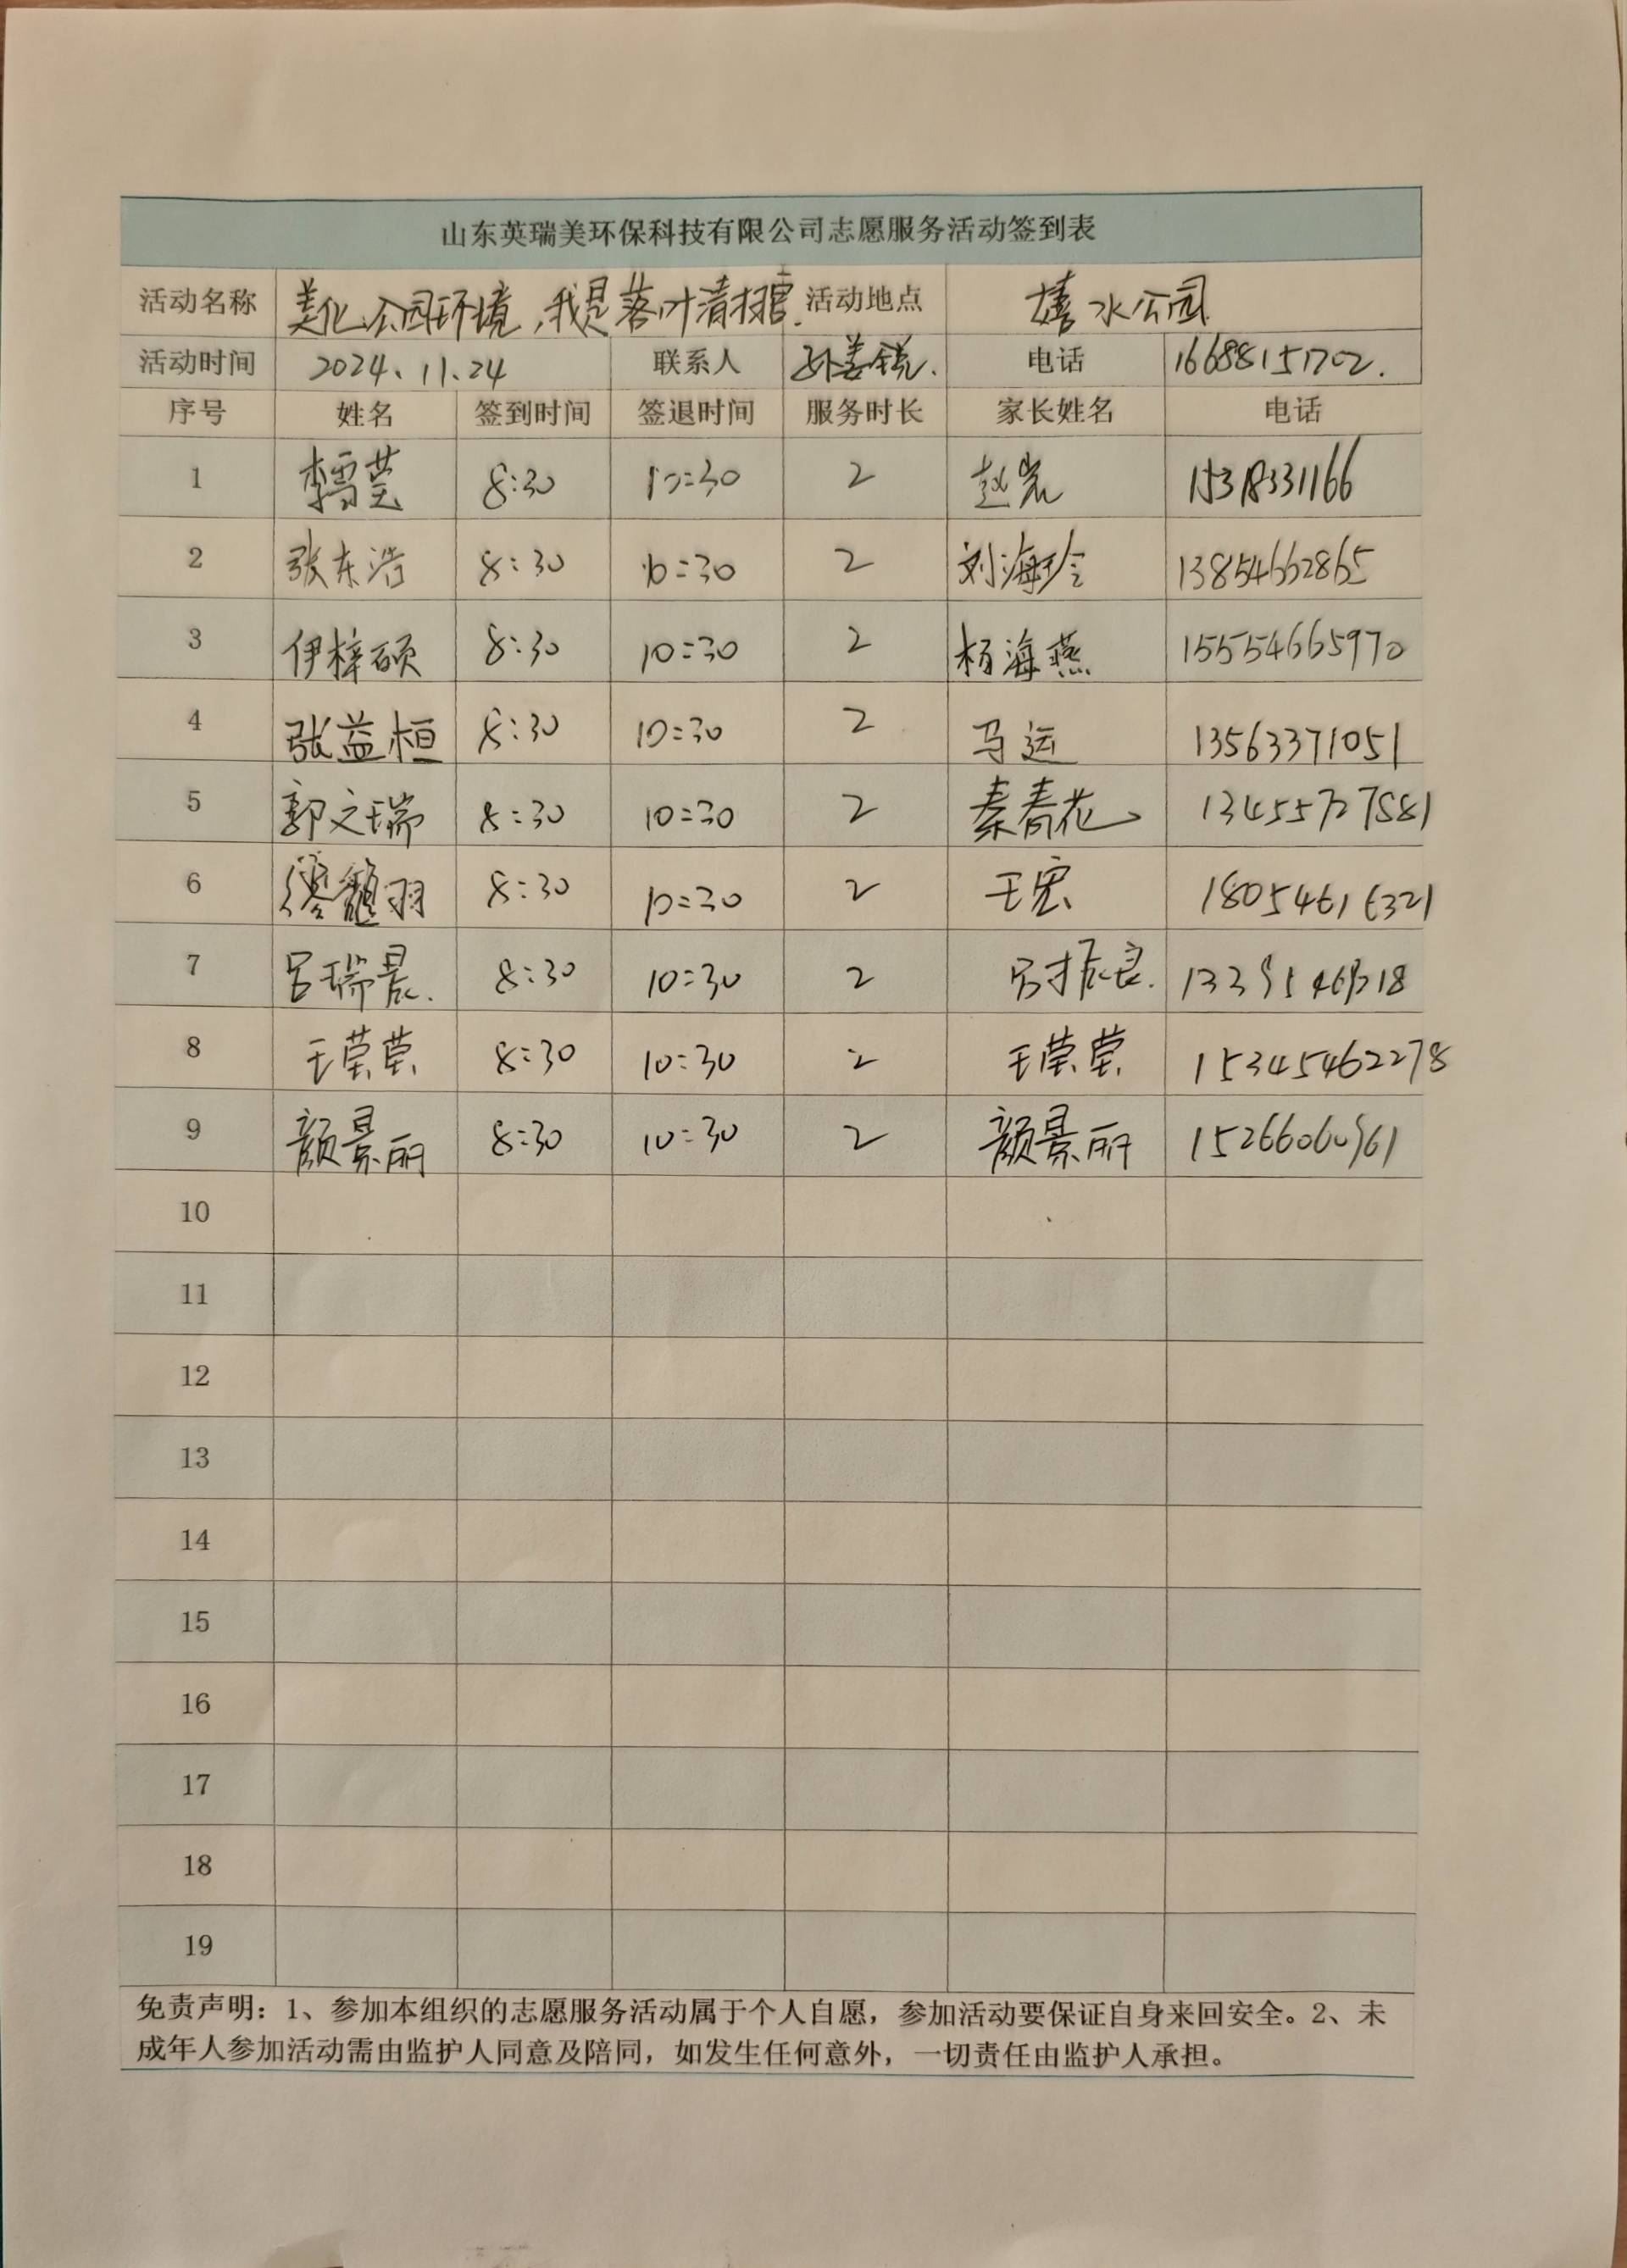 山东英瑞美环保科技有限公司志愿服务活动签到表
活动名称 美化公园环境,我是落叶清扫官. 活动地点 嬉水公园
活动时间 2024、11、24 联系人 孙姜锐. 电话 16688151702.
序号 姓名 签到时间 签退时间 服务时长 家长姓名 电话
1 李雪莹 8:30 10:30 2 赵岩
2 张东浩 8:30 10:30 2 刘海玲 13854662865
3 伊梓硕 8:30 10:30 2 杨海燕 15554665970
4 张益桓 8:30 10:30 2 马运 13563371051
5 郭文瑞 8:30 10:30 2 秦春花 13455727881
6 8:30 10:30 2 王宏 18054616321
7 吕瑞晨. 8:30 10:30 2 吕振良.
8 王荣荣 8:30 10:30 2 王荣荣 15345462278
9 颜景丽 8:30 10:30 2 颜景丽 15266060961
10
11
12
13
14
15
16
17
18
19
免责声明:1、参加本组织的志愿服务活动属于个人自愿,参加活动要保证自身来回安全。2、未
成年人参加活动需由监护人同意及陪同,如发生任何意外,一切责任由监护人承担。